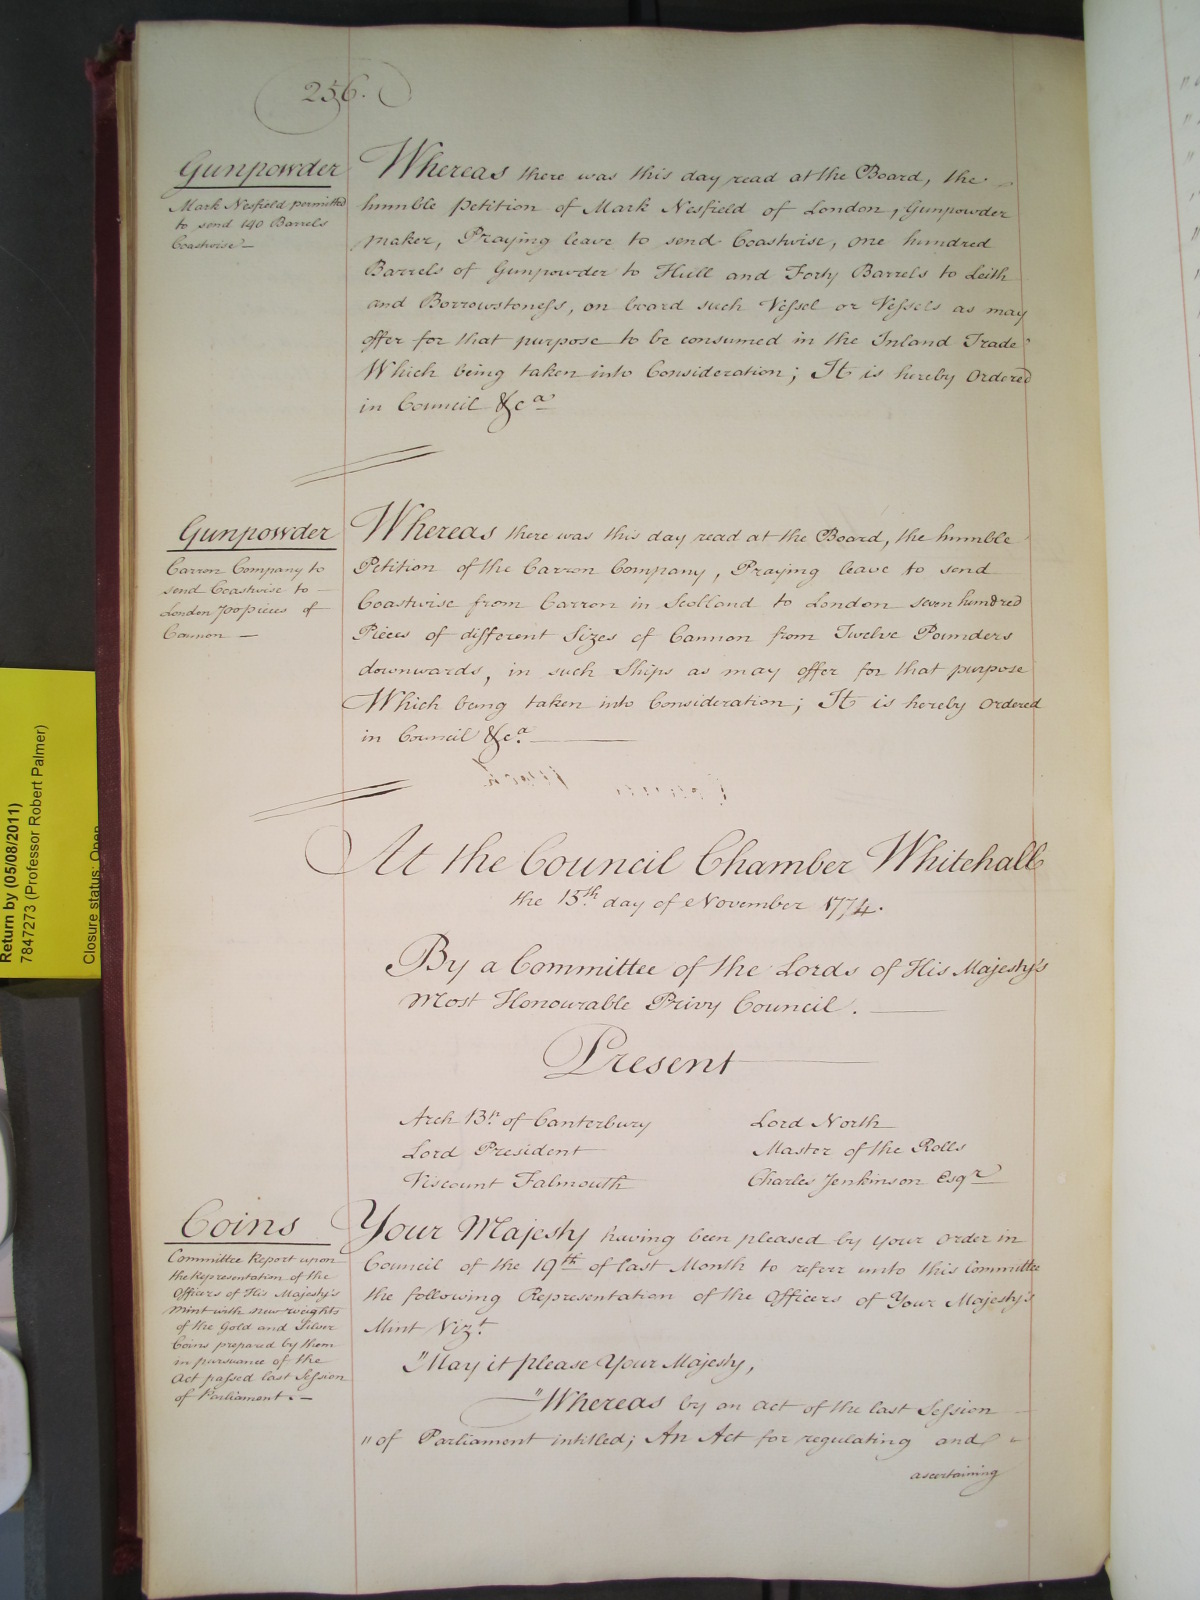 256.
Gunpowder
Mark Nesfield permitted
to send 140 Barrels
Coastwise —
Whereas there was this day read at the Board, the
humble Petition of Mark Nesfield of London, Gunpowder
maker, Praying leave to send Coastwise, one hundred
Barrels of Gunpowder to Hull and Forty Barrels to Leith
and Borrowstoness, on board such Vessel or Vessels as may
offer for that purpose to be consumed in the Inland Trade
Which being taken into Consideration; It is hereby Ordered
in Council &ca
Gunpowder
Carron Company to
send Coastwise to —
London 700 pieces of
Cannon —
Whereas there was this day read at the Board, the humble
Petition of the Carron Company, Praying leave to send
Coastwise from Carron in Scotland to London seven hundred
Pieces of different Sizes of Cannon from Twelve Pounders
downwards, in such Ships as may offer for that purpose
Which being taken into Consideration; It is hereby Ordered
in Council &ca.
At the Council Chamber Whitehall
the 15th day of November 1774.
By a Committee of the Lords of His Majesty's
Most Honourable Privy Council.
Present
Arch Bp. of Canterbury
Lord President
Viscount Falmouth
Lord North
Master of the Rolls
Charles Jenkinson Esqr
Coins
Committee Report upon
the Representation of the
Officers of His Majesty's
Mint with new weights
of the Gold and Silver
Coins prepared by them
in pursuance of the
Act passed last Session
of Parliament. —
Your Majesty having been pleased by Your Order in
Council of the 19th of last Month to referr unto this Committee
the following Representation of the Officers of Your Majesty's
Mint Vizt.
"May it please Your Majesty,
"Whereas by an act of the last Session
"of Parliament intitled; An Act for regulating and
ascertaining
Return by (05/08/2011)
7847273 (Professor Robert Palmer)
Closure status: Open